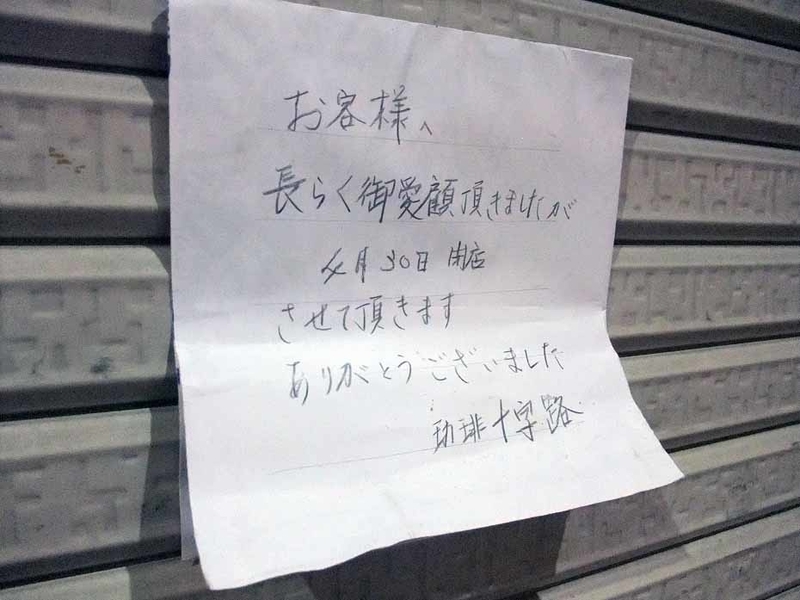 お客様へ
長らく御愛顧頂きましたが
4月30日 閉店
させて頂きます
ありがとうございました
珈琲十字路